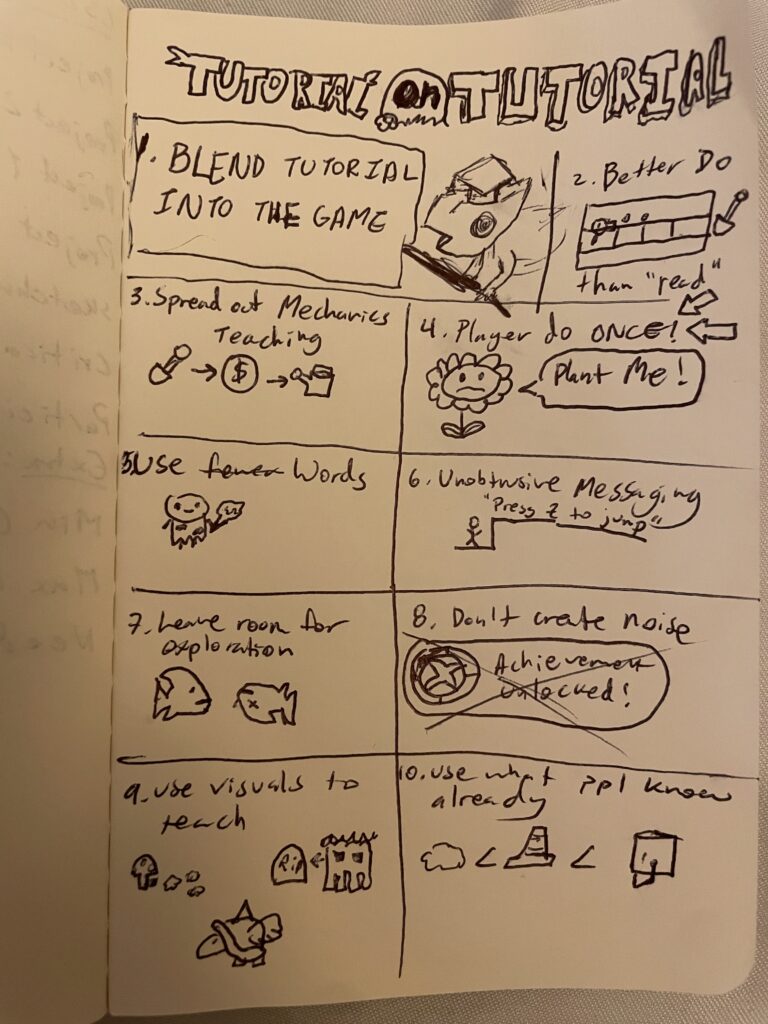 TUTORIAL on TUTORIAL
1. BLEND TUTORIAL
INTO THE GAME
2. Better Do
than "read"
3. Spread out Mechanics
Teaching
$
4. Player do ONCE!
Plant Me!
5. Use fewer Words
6. Unobtrusive Messaging
"Press Z to jump"
7. Leave room for
exploration
8. Don't create noise
Achievement
Unlocked!
9. use visuals to
teach
RIP
10. use what ppl know
already
< <
Project
Project
Project
Project